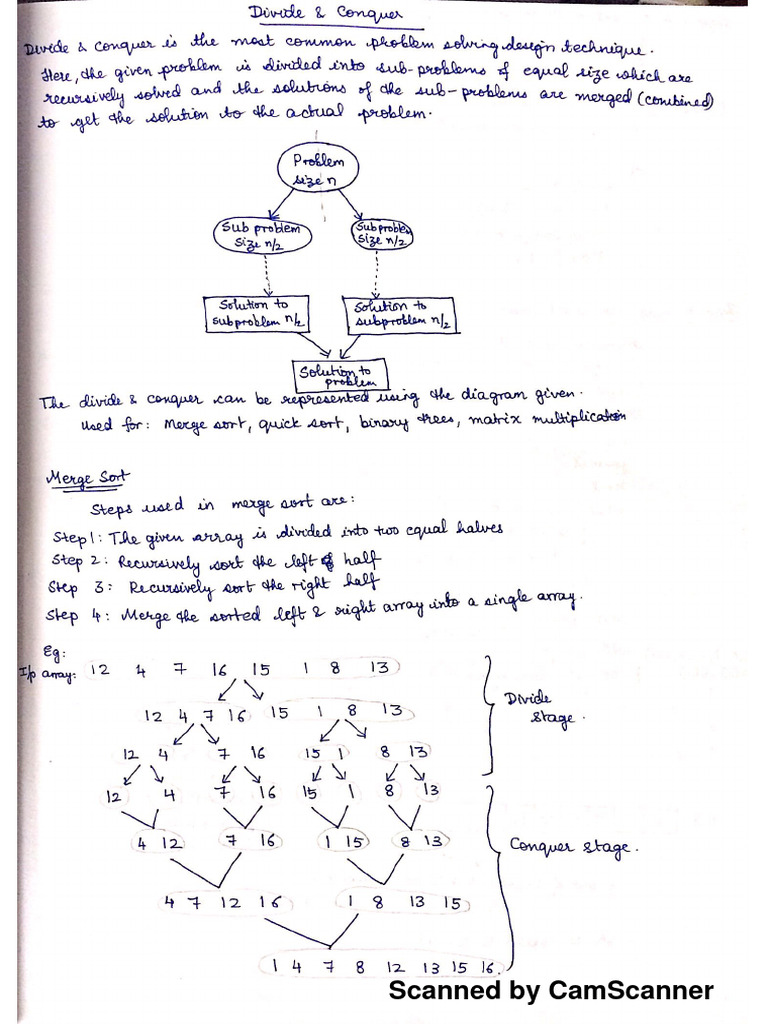 Divide & Conquer
Divide & conquer is the most common problem solving design technique.
Here, the given problem is divided into sub-problems of equal size which are
recursively solved and the solutions of the sub-problems are merged (combined)
to get the solution to the actual problem.
Problem
size n
Sub problem
size n/2
Subproblem
size n/2
Solution to
subproblem n/2
Solution to
subproblem n/2
Solution to
problem
The divide & conquer can be represented using the diagram given.
Used for: Merge sort, quick sort, binary trees, matrix multiplication
Merge Sort
Steps used in merge sort are:
Step 1: The given array is divided into two equal halves
Step 2: Recursively sort the left half
Step 3: Recursively sort the right half
Step 4: Merge the sorted left & right array into a single array.
Eg:
I/p array: 12 4 7 16 15 1 8 13
12 4 7 16 15 1 8 13
Divide
stage.
12 4 7 16 15 1 8 13
12 4 7 16 15 1 8 13
4 12 7 16 1 15 8 13
Conquer stage.
4 7 12 16 1 8 13 15
1 4 7 8 12 13 15 16.
Scanned by CamScanner